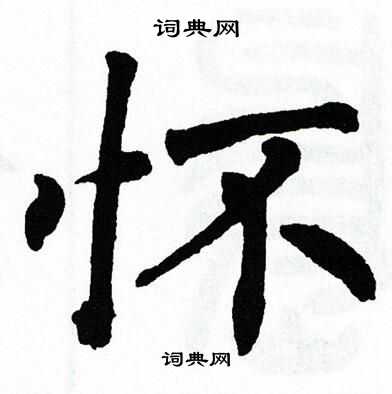 词典网
怀
词典网